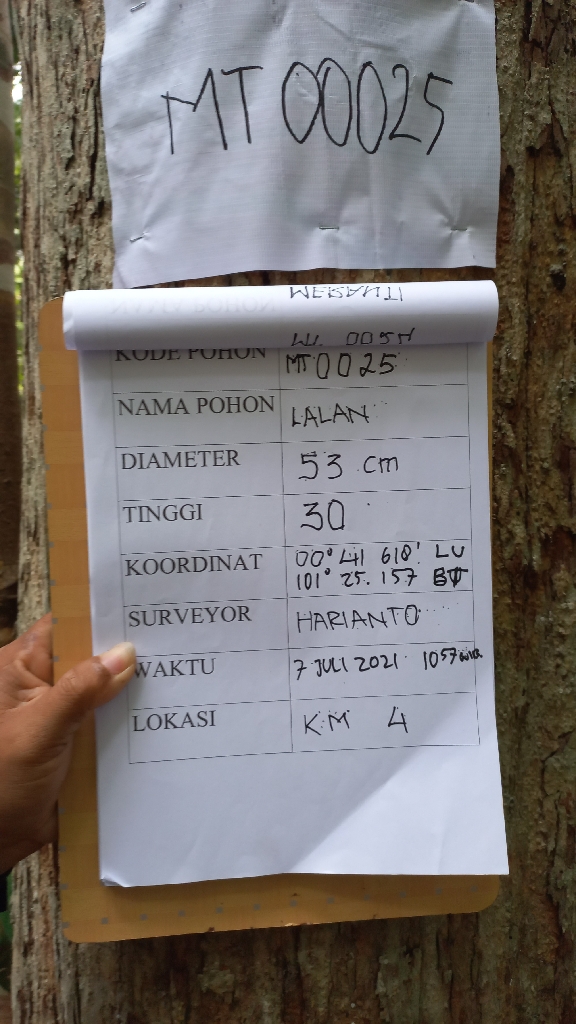 MT 00025
KODE POHON MT 0025
NAMA POHON LALAN
DIAMETER 53 cm
TINGGI 30
KOORDINAT 00° 41 618' LU
101° 25. 157 BT
SURVEYOR HARIANTO
WAKTU 7 JULI 2021 10 57 WIB
LOKASI KM 4